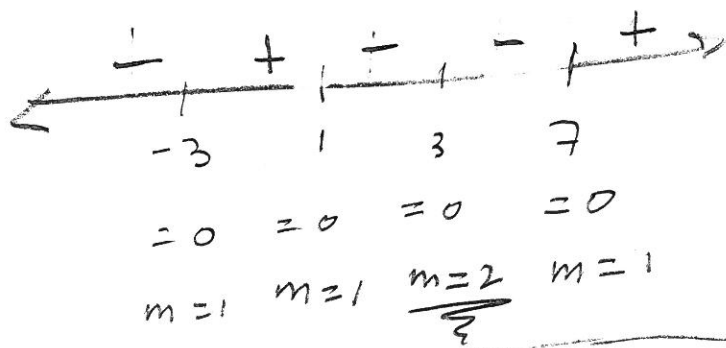 - + - - +
-3 1 3 7
=0 =0 =0 =0
m=1 m=1 m=2 m=1